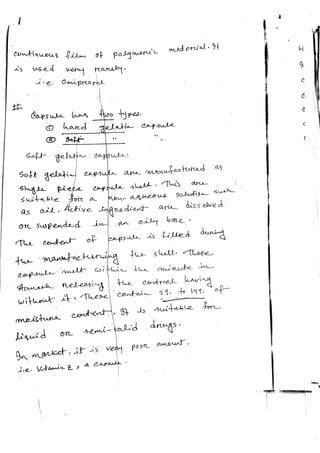 1
Continuous film of polymeric material. It
is used very rarely.
i.e. Omiprazole
#
Capsule has two types.
① hard gelatin capsule
② Soft " "
Soft gelatin capsule:
Soft gelatin capsule are manufactured as
single piece capsule shell. This are
suitable for a non-aqueous solution such
as oil. Active ingredient are dissolved
or suspended in an oily base.
The content of capsule is filled during
the manufacturing the shell. These
capsule melt within the minute in
stomach releasing the content having
without it. These contain 5%. to 14%. of
moisture content. It is suitable for
liquid or semi-solid drugs.
In market, it is very poor amount.
i.e. Vitamin E, A Capsule